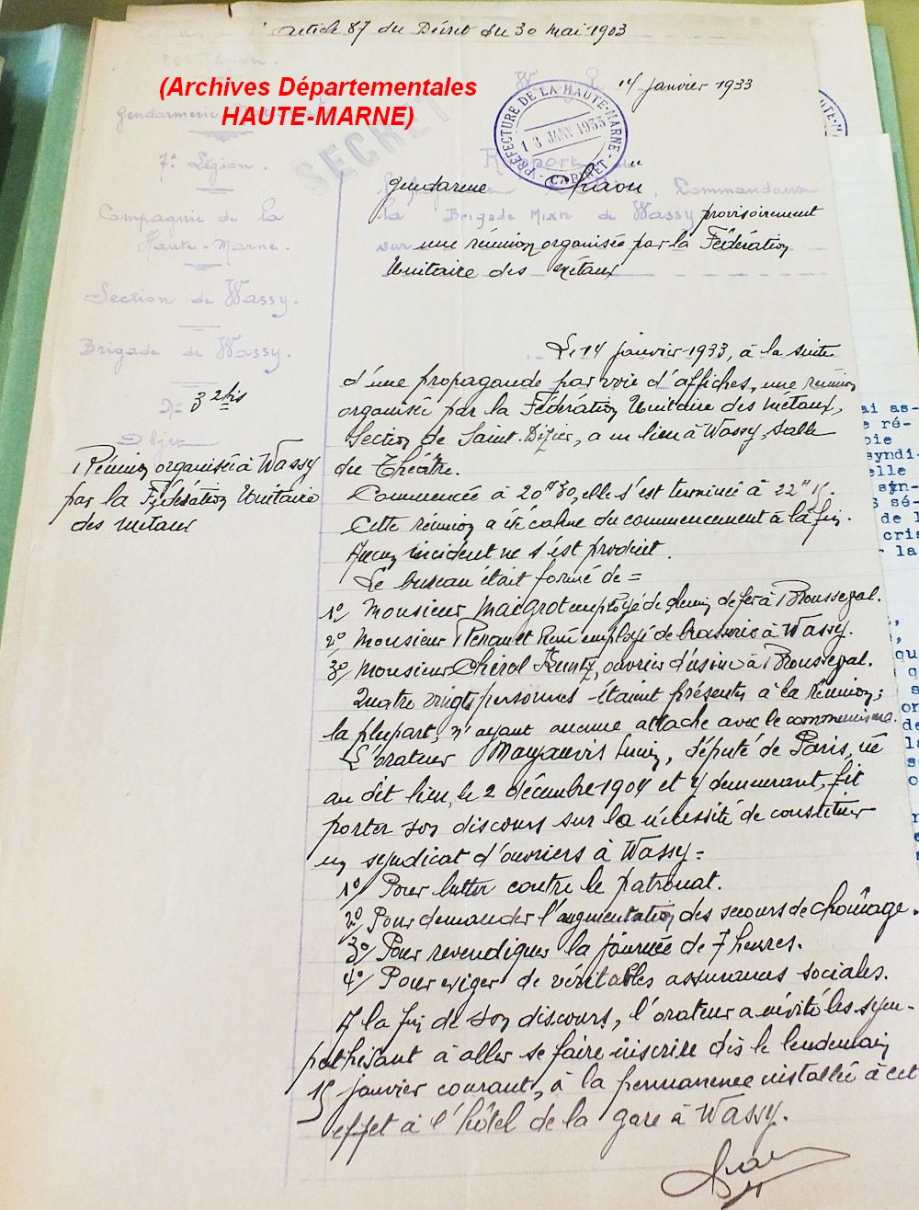 article 87 du Décret du 30 mai 1903
(Archives Départementales
HAUTE-MARNE)
Gendarmerie
7e Légion.
Compagnie de la
Haute-Marne.
Section de Wassy.
Brigade de Wassy.
No 3 2hs
Objet
Réunion organisée à Wassy
par la Fédération Unitaire
des métaux
SECRET
14 janvier 1933
PRÉFECTURE DE LA HAUTE-MARNE
18 JANV 1933
CABINET
Rapport du
gendarme Commandant
la Brigade Mixte de Wassy provisoirement
sur une réunion organisée par la Fédération
Unitaire des métaux
Le 14 janvier 1933, à la suite
d'une propagande par voie d'affiches, une réunion
organisée par la Fédération Unitaire des métaux,
Section de Saint-Dizier, a eu lieu à Wassy, salle
du Théâtre.
Commencée à 20H30, elle s'est terminée à 22H15.
Cette réunion a été calme du commencement à la fin.
Aucun incident ne s'est produit.
Le bureau était formé de =
1º/ Monsieur Maigrot employé de chemin de fer à Brousseval.
2º/ Monsieur Renaut René employé de brasserie à Wassy.
3º/ Monsieur Chérol Kuntz, ouvrier d'usine à Brousseval.
Quatre vingts personnes étaient présentes à la réunion;
la plupart, n'ayant aucune attache avec le communisme.
L'orateur Monjauvis Lucien, député de Paris, né
au dit lieu, le 2 décembre 1904 et y demeurant, fit
porter son discours sur la nécessité de constituer
un syndicat d'ouvriers à Wassy =
1º/ Pour lutter contre le patronat.
2º/ Pour demander l'augmentation des secours de chômage.
3º/ Pour revendiquer la journée de 7 heures.
4º/ Pour exiger de véritables assurances sociales.
A la fin de son discours, l'orateur a invité les sym-
pathisant à aller se faire inscrire dès le lendemain
15 janvier courant, à la permanence installée à cet
effet à l'hôtel de la gare à Wassy.